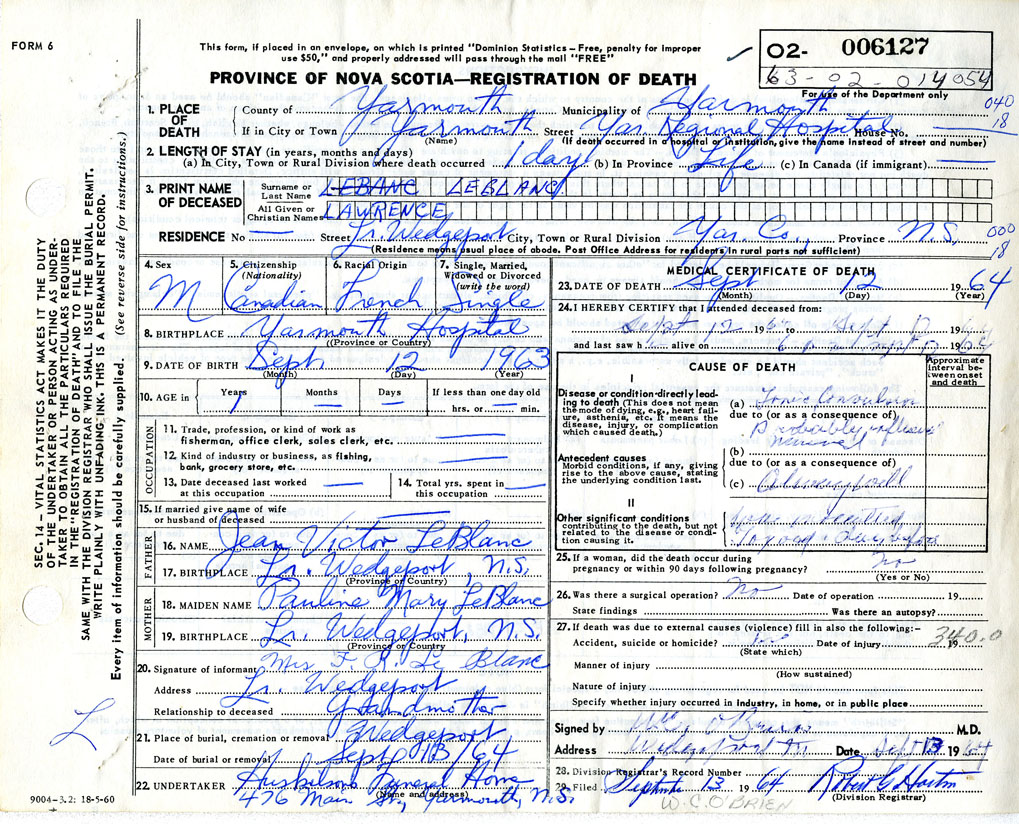 FORM 6
This form, if placed in an envelope, on which is printed "Dominion Statistics – Free, penalty for improper
use $50," and properly addressed will pass through the mail "FREE"
PROVINCE OF NOVA SCOTIA—REGISTRATION OF DEATH
O2- 006127
63-02-014054
For use of the Department only
040
18
1. PLACE OF DEATH County of Yarmouth Municipality of Yarmouth
If in City or Town Yarmouth Street Yar Regional Hospital House No. —
(Name) (If death occurred in a hospital or institution, give the name instead of street and number)
2. LENGTH OF STAY (in years, months and days)
(a) In City, Town or Rural Division where death occurred 1 day (b) In Province Life (c) In Canada (if immigrant) —
3. PRINT NAME OF DECEASED
Surname or Last Name LEBANC LEBLANC
All Given or Christian Names LAWRENCE
RESIDENCE No — Street Lr. Wedgeport City, Town or Rural Division Yar. Co., Province N.S.
(Residence means usual place of abode. Post Office Address for residents in rural parts not sufficient)
000
18
4. Sex M
5. Citizenship (Nationality) Canadian
6. Racial Origin French
7. Single, Married, Widowed or Divorced (write the word) Single
8. BIRTHPLACE Yarmouth Hospital
(Province or Country)
9. DATE OF BIRTH Sept. 12 1963
(Month) (Day) (Year)
10. AGE in Years 1 Months — Days — If less than one day old hrs. or — min.
OCCUPATION
11. Trade, profession, or kind of work as fisherman, office clerk, sales clerk, etc. —
12. Kind of industry or business, as fishing, bank, grocery store, etc. —
13. Date deceased last worked at this occupation —
14. Total yrs. spent in this occupation —
15. If married give name of wife or husband of deceased —
FATHER
16. NAME Jean Victor LeBlanc
17. BIRTHPLACE Lr. Wedgeport, N.S.
(Province or Country)
MOTHER
18. MAIDEN NAME Pauline Mary LeBlanc
19. BIRTHPLACE Lr. Wedgeport, N.S.
(Province or Country)
20. Signature of informant Mrs F. R. Le Blanc
Address Lr. Wedgeport
Relationship to deceased Grandmother
21. Place of burial, cremation or removal Wedgeport
Date of burial or removal Sept 13/64
22. UNDERTAKER Huskilson Funeral Home
(Name and address)
476 Main St, Yarmouth, N.S.
9004–3.2: 18-5-60
MEDICAL CERTIFICATE OF DEATH
23. DATE OF DEATH Sept 12 1964
(Month) (Day) (Year)
24. I HEREBY CERTIFY that I attended deceased from:
Sept 12 1964 to Sept 12 1964
and last saw h alive on Sept 12 1964
CAUSE OF DEATH
Approximate interval between onset and death
I
Disease or condition directly leading to death (This does not mean the mode of dying, e.g., heart failure, asthenia, etc. It means the disease, injury, or complication which caused death.)
(a) Tonic Convulsion
due to (or as a consequence of)
Probably
Antecedent causes
Morbid conditions, if any, giving rise to the above cause, stating the underlying condition last.
(b)
due to (or as a consequence of)
(c)
II
Other significant conditions
contributing to the death, but not related to the disease or condition causing it.
25. If a woman, did the death occur during
pregnancy or within 90 days following pregnancy? No
(Yes or No)
26. Was there a surgical operation? No Date of operation 19
State findings Was there an autopsy?
27. If death was due to external causes (violence) fill in also the following:–
Accident, suicide or homicide? no Date of injury 19
(State which)
340.0
Manner of injury
(How sustained)
Nature of injury
Specify whether injury occurred in industry, in home, or in public place
Signed by O'Brien M.D.
Address Wedgeport Date Sept 13 1964
28. Division Registrar's Record Number
29. Filed 13 1964 Robert
(Division Registrar)
W.C. O'BRIEN
SEC. 14 – VITAL STATISTICS ACT MAKES IT THE DUTY
OF THE UNDERTAKER OR PERSON ACTING AS UNDER-
TAKER TO OBTAIN ALL THE PARTICULARS REQUIRED
IN THE "REGISTRATION OF DEATH" AND TO FILE THE
SAME WITH THE DIVISION REGISTRAR WHO SHALL ISSUE THE BURIAL PERMIT.
WRITE PLAINLY WITH UNFADING INK. THIS IS A PERMANENT RECORD.
Every item of information should be carefully supplied. (See reverse side for instructions.)
L